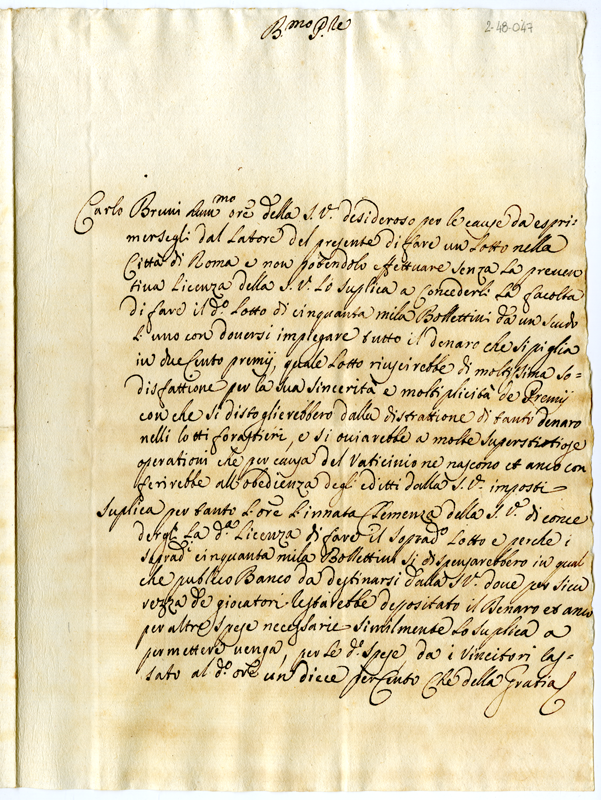 B.mo P.re
2-48-047
Carlo Bruni Hum.mo ore della S.V. desideroso per le cause da espri=
mersegli dal Latore del presente di fare un Lotto nella
Città di Roma e non potendolo effettuare senza La preven
tiva Licenza della S.V. Lo suplica a concederli La facoltà
di fare il d.o Lotto di cinquanta mila Bollettini da un scudo
L'uno con doversi impiegare tutto il denaro che si piglia
in due Cento premij, quale Lotto riuscirebbe di moltissima so=
disfattione per la sua sincerità e moltiplicità de Premij
con che si distoglierebbero dalla distrattione di tanto denaro
nelli lotti forastieri, e si ouiarebbe a molte superstitiose
operationi che per causa del Vaticinio ne nascono et anco con
ferirebbe all'obedienza degl'editti dalla S.V. imposti
Suplica per tanto L'ore L'innata Clemenza della S.V. di conce
dergli La d.a Licenza di fare il soprad.o Lotto e perche i
soprad.i cinquanta mila Bollettini si dispensarebbero in qual
che publico Banco da destinarsi dalla S.V. doue per sicu
rezza de giocatori restarebbe depositato il Denaro et anco
per altre spese necessarie similmente Lo suplica a
permettere uenga, per le d.e spese da i Vincitori las=
sato al d.o ore un diece per Cento Che della Gratia